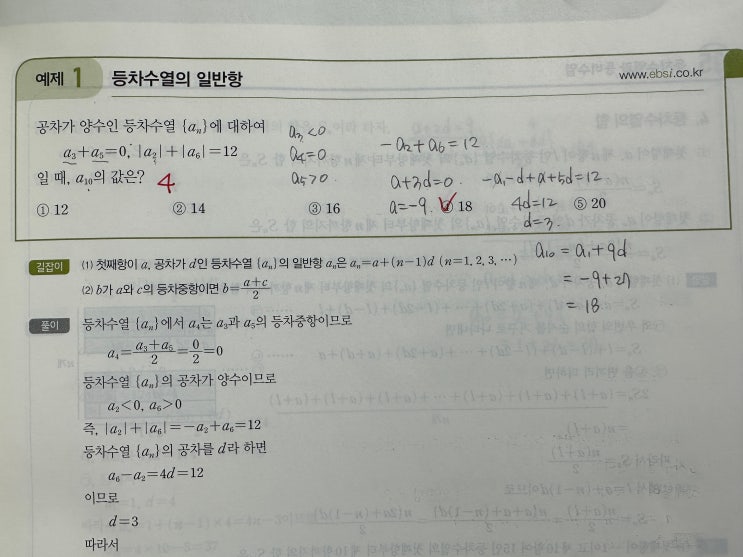 예제 1 등차수열의 일반항 www.ebsi.co.kr
공차가 양수인 등차수열 {aₙ}에 대하여
a₃+a₅=0, |a₂|+|a₆|=12
일 때, a₁₀의 값은? 4
① 12 ② 14 ③ 16 ④ 18 ⑤ 20
a₃<0
a₄=0
a₅>0
-a₂+a₆=12
a+3d=0
a=-9
-a₁-d+a+5d=12
4d=12
d=3
a₁₀=a₁+9d
=-9+27
=18
길잡이 (1) 첫째항이 a, 공차가 d인 등차수열 {aₙ}의 일반항 aₙ은 aₙ=a+(n-1)d (n=1, 2, 3, …)
(2) b가 a와 c의 등차중항이면 b=(a+c)/2
풀이 등차수열 {aₙ}에서 a₄는 a₃과 a₅의 등차중항이므로
a₄=(a₃+a₅)/2=0/2=0
등차수열 {aₙ}의 공차가 양수이므로
a₂<0, a₆>0
즉, |a₂|+|a₆|=-a₂+a₆=12
등차수열 {aₙ}의 공차를 d라 하면
a₆-a₂=4d=12
이므로
d=3
따라서